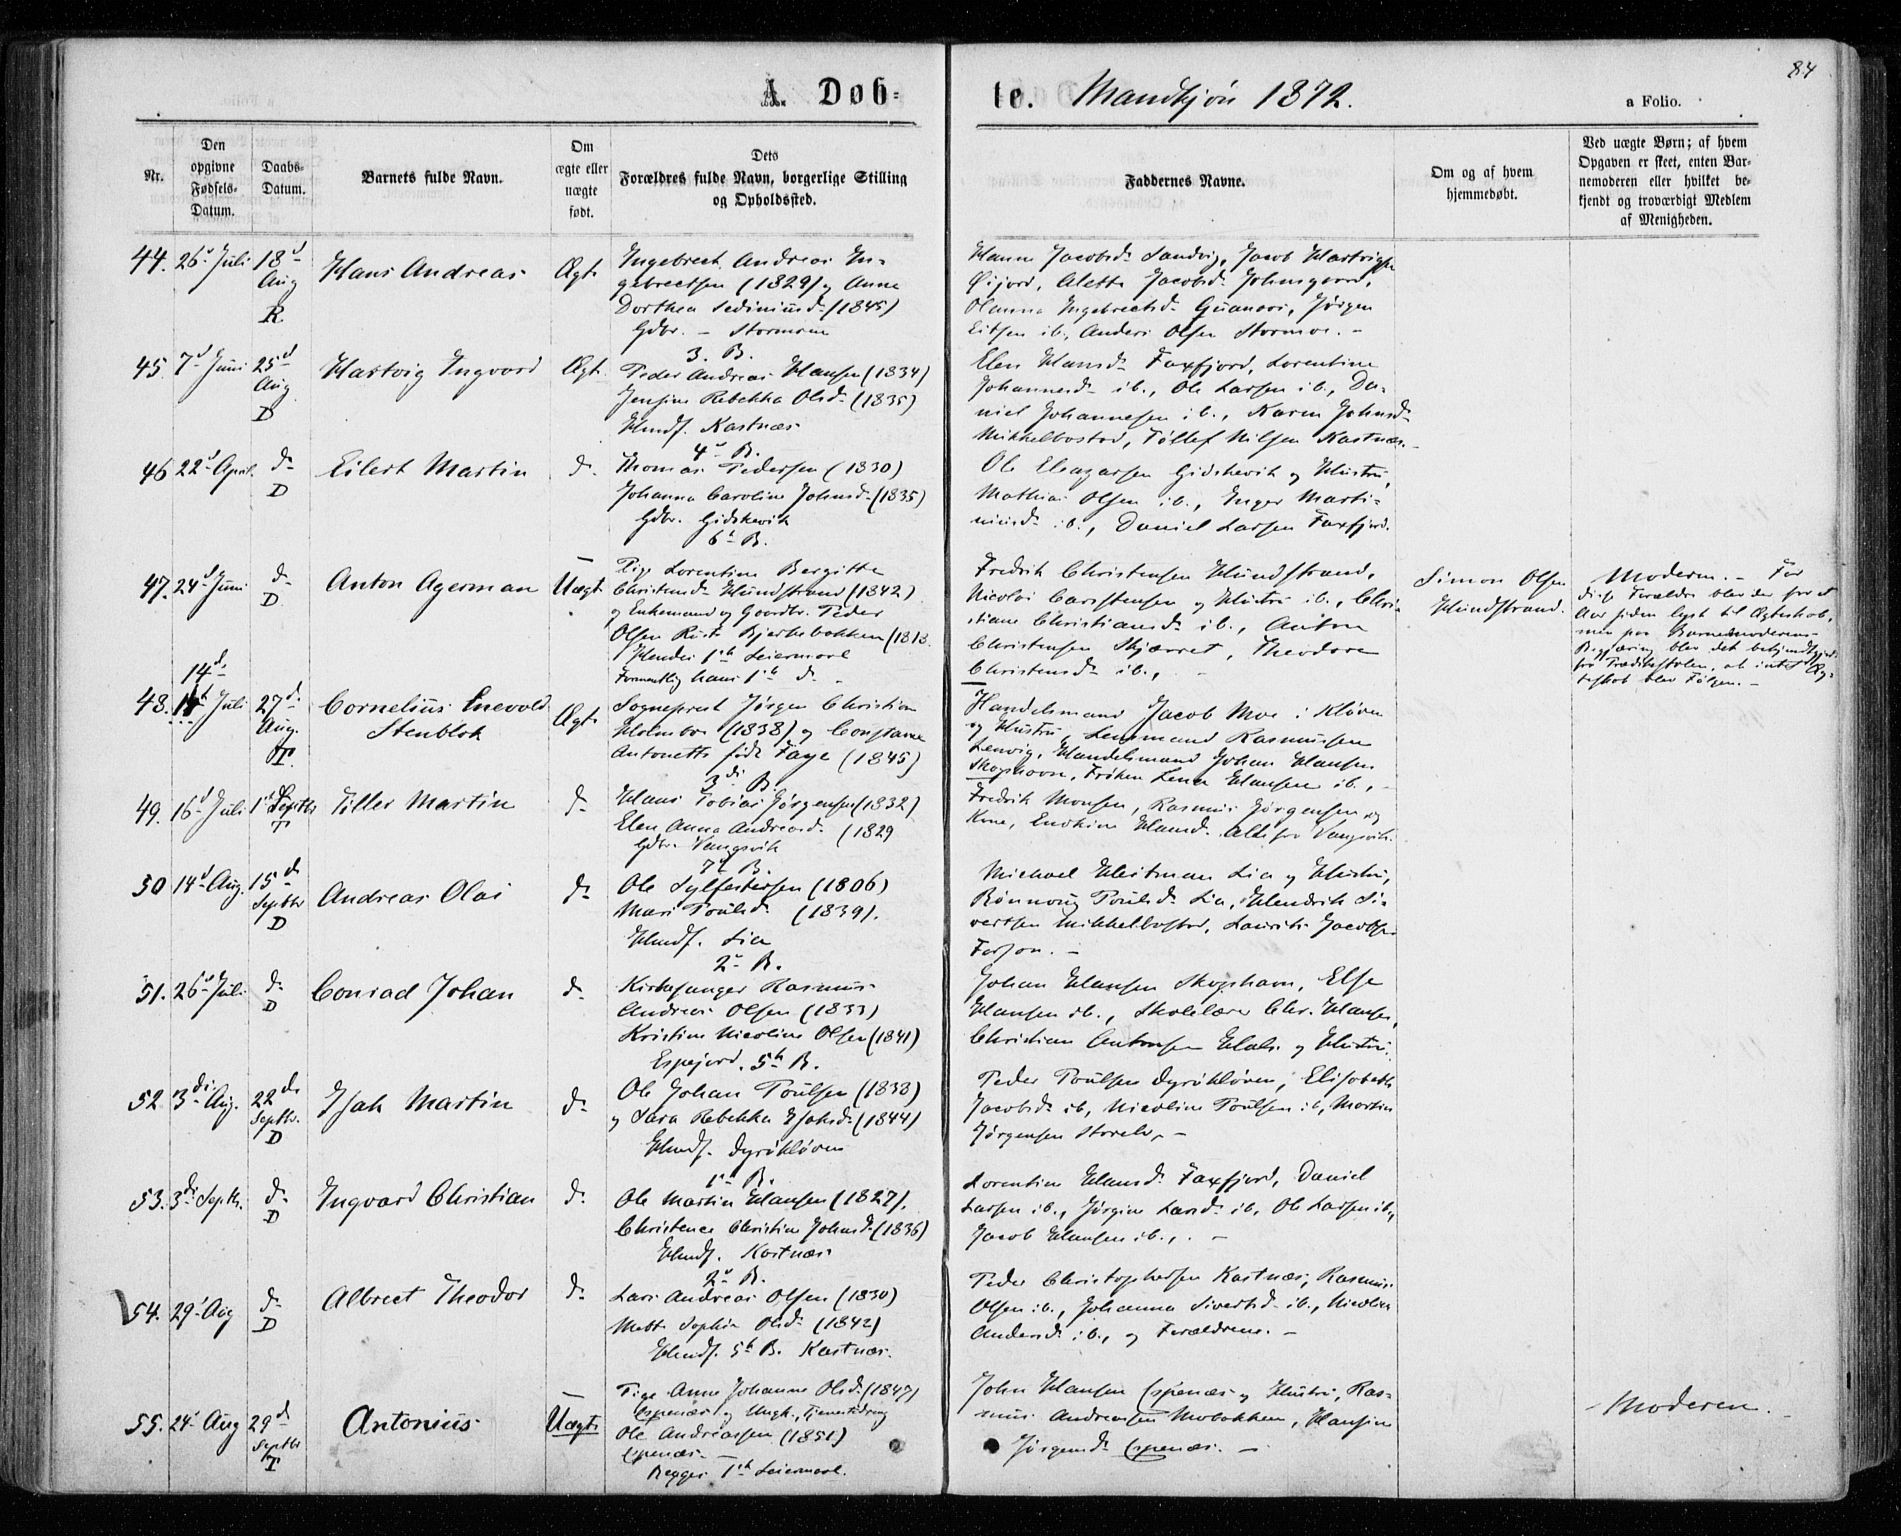 84
A. Døb=
te. Mandkjøn 1872.
a Folio.
Nr.
Den opgivne Fødsels-Datum.
Daabs-Datum.
Barnets fulde Navn.
Om ægte eller uægte født.
Dets Forældres fulde Navn, borgerlige Stilling og Opholdssted.
Faddernes Navne.
Om og af hvem hjemmedøbt.
Ved uægte Børn; af hvem Opgaven er skeet, enten Barnemoderen eller hvilket bekjendt og troværdigt Medlem af Menigheden.
44. 26 Juli 18d Aug R
Hans Andreas
Ægt.
Ingebrect Andreas In-
gebrectsen (1829) og Anne
Dorthea Sediniusd. (1845)
Gdbr. - Stormoen
3. B.
Hanna Jacobsd. Sandvig, Jacob Hartvigsen
Øijord, Alette Jacobsd. Johnsgaard,
Olianna Ingebrectsd. Jørgen
ib., Anders Olsen Stormoe. -
45. 7d Juni 25d Aug D
Hartvig Ingvard
Ægt.
Peder Andreas Hansen (1834)
Jensine Rebekka Olsd. (1835)
Huusf. Kastnæs
4. B.
Elen Hansd. Faxfjord, Lorentine
Johannesd. ib., Ole Larsen ib., Da-
niel Johannesen ib., Karen Johnsd.
Mikkelbostad, Tollef Nilsen Kastnæs.
46 22d April d. D
Eilert Martin
d.
Thomas Pedersen (1830)
Johanna Caroline Johnsd. (1835)
Gdbr. Gidskevik
6. B.
Ole Eleazarsen Gidskevik og Hustru,
Mathias Olsen ib., Inger Marti-
niusd. ib., Daniel Larsen Faxfjord.
47. 24d Juni d. D
Anton Agerman
Uægt.
Pige Lorentine Bergitte
Christensd. Hundstrand (1842)
og Enkemand og Gaardbr. Peder
Olsen Bjerkebakken (1818.
Hendes 1ste Leiermaal
Formentlig hans 1ste d. -
Fredrik Christensen Hundstrand,
Nicolai Carstensen og Hustru ib., Chri-
stiane Christiansd. ib., Anton
Christensen Skjærret, Theodora
Christensd. ib., -
Simon Olsen
Hundstrand.
Moderen. - For
disse Forældre blev der for et
Aar siden lyst til Ægteskab,
men paa Barnemoderens
Begjæring blev det bekjendtgjort
fra Prædikestolen, at intet Æg-
teskab blev Følgen. -
14d
48. Juli 27d Aug. T.
Cornelius Enevold
Stenblok
Ægt.
Sogneprest Jørgen Christian
Holmboe (1838) og Constance
Antonette født Faye (1845)
3di B.
Handelsmand Jacob Moe i Kløven
og Hustru, Lensmand Rasmussen
Lenvig, Handelsmand Johan Hansen
Skogshavn, Frøken Lena Hansen ib., -
49. 16d Juli 1ste Septbr T
Tiller Martin
d.
Hans Tobias Jørgensen (1832)
Elen Anna Andreasd. (1829
Gdbr. Vangsvik
7d B.
Fredrik Monsen, Rasmus Jørgensen og
Kone, Hansd. Alle fra Vangsvik.
50 14d Aug. 15d Septbr D
Andreas Olai
d.
Ole Sylfestersen (1806)
Mari Poulsd. (1839).
Huusf. Lia
2. B.
Michael Heitman Lia og Hustru,
Rønnoug Poulsd. Lia, Hendrik Si-
vertsen Mikkelbostad, Laurits Jacobsen
51. 26 Juli d. D
Conrad Johan
d.
Kirkesanger Rasmus
Andreas Olsen (1833)
Kristine Nicoline Olsen (1841)
Espejord. 5te B.
Johan Hansen Skogshavn, Else
Hansen ib., Skolelærer Chr. Hansen,
Christian Antonsen Hals og Hustru.
52 3di Aug. 22d Septbr. D
Isak Martin
d.
Ole Johan Poulsen (1838)
og Sara Rebekka Isaksd. (1844)
Huusf. Dyrøkløven
1ste B.
Peder Poulsen Dyrøkløven, Elisabeth
Jacobsd. ib, Nicoline Poulsen ib, Martin
Jørgensen Storelv, -
53. 3di Septbr. d. D
Ingvard Christian
d.
Ole Martin Hansen (1827),
Christence Christine Johnsd. (1836)
Huusf. Kastnæs
2. B.
Lorentine Hansd. Faxfjord, Daniel
Larsen ib., Jørgine Larsd. ib, Ole Larsen ib.,
Jacob Hansen ib., -
54. 29 Aug d. D
Albrect Theodor
d.
Lars Andreas Olsen (1830)
Mette Sophie Olsd. (1842)
Huusf. 5te B. Kastnæs.
Peder Christophersen Kastnæs, Rasmus
Olsen ib., Johanna Sivertsd. ib., Nicoline
Andersd. ib., og Forældrene. -
55. 24 Aug 29d Septbr T
Antonius
Uægte
Pige Anne Johanne Olsd. (1847)
Espenæs og Ungk., Tjenestedreng
Ole Andreassen (1851)
Espenæs -
Begges 1ste Leiermaal.
John Hansen Espenæs og Hustru, Ras-
mus Andreassen Mobakken, Hansine
Jørgensd. Espenæs. -
Moderen.